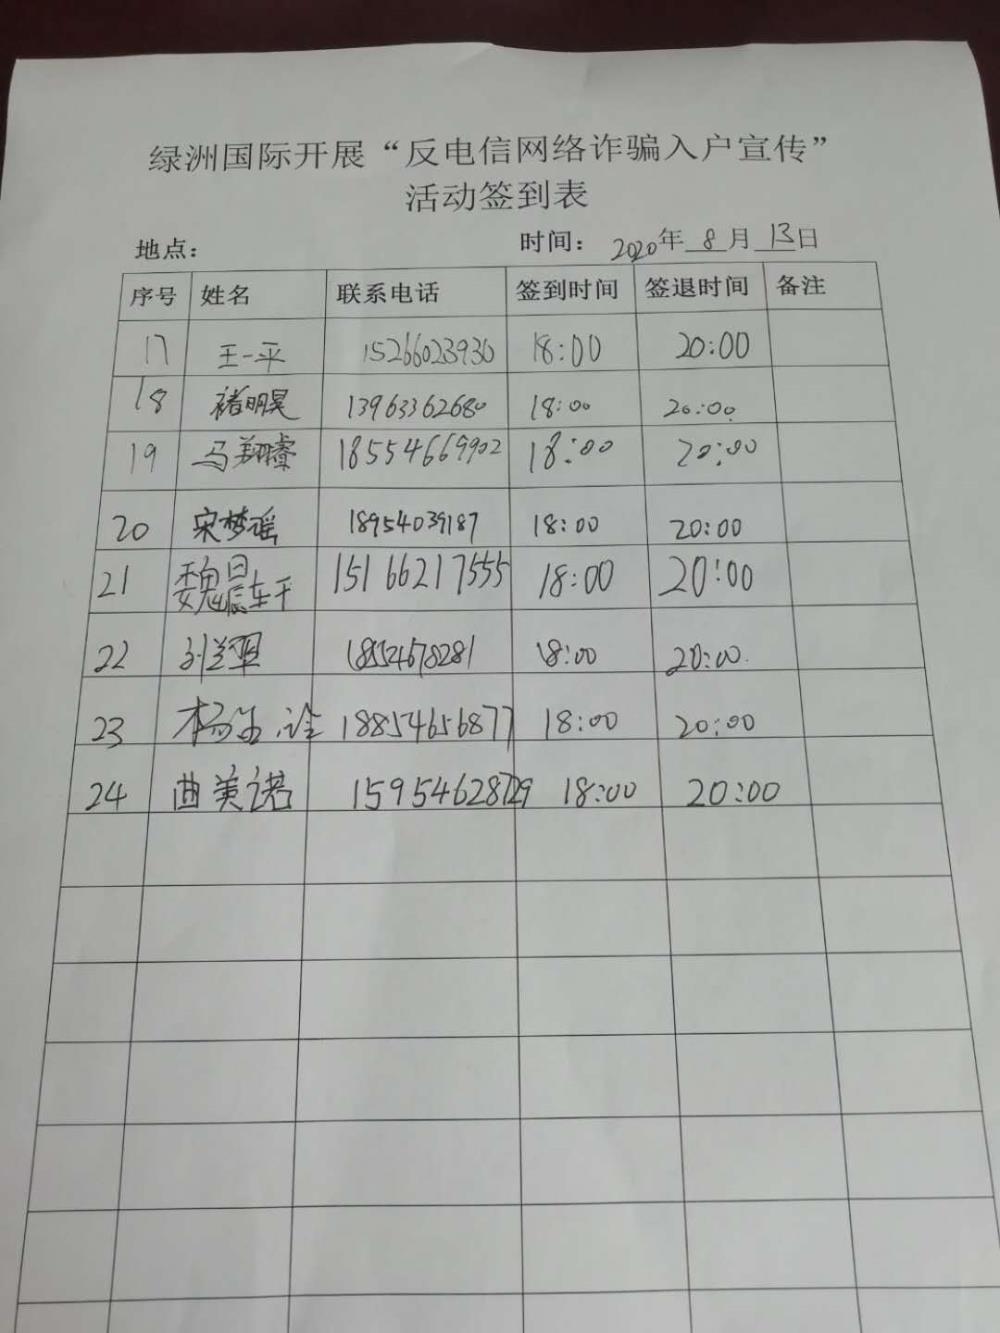 绿洲国际开展“反电信网络诈骗入户宣传”
活动签到表
地点： 时间： 2020年 8 月 13日
序号 姓名 联系电话 签到时间 签退时间 备注
17 王一平 15266023930 18:00 20:00
18 褚明昊 13963362680 18:00 20:00
19 马翔睿 18554669902 18:00 20:00
20 宋梦瑶 18954039187 18:00 20:00
21 魏晨轩 15166217555 18:00 20:00
22 18:00 20:00
23 18854656877 18:00 20:00
24 曲美诺 18:00 20:00